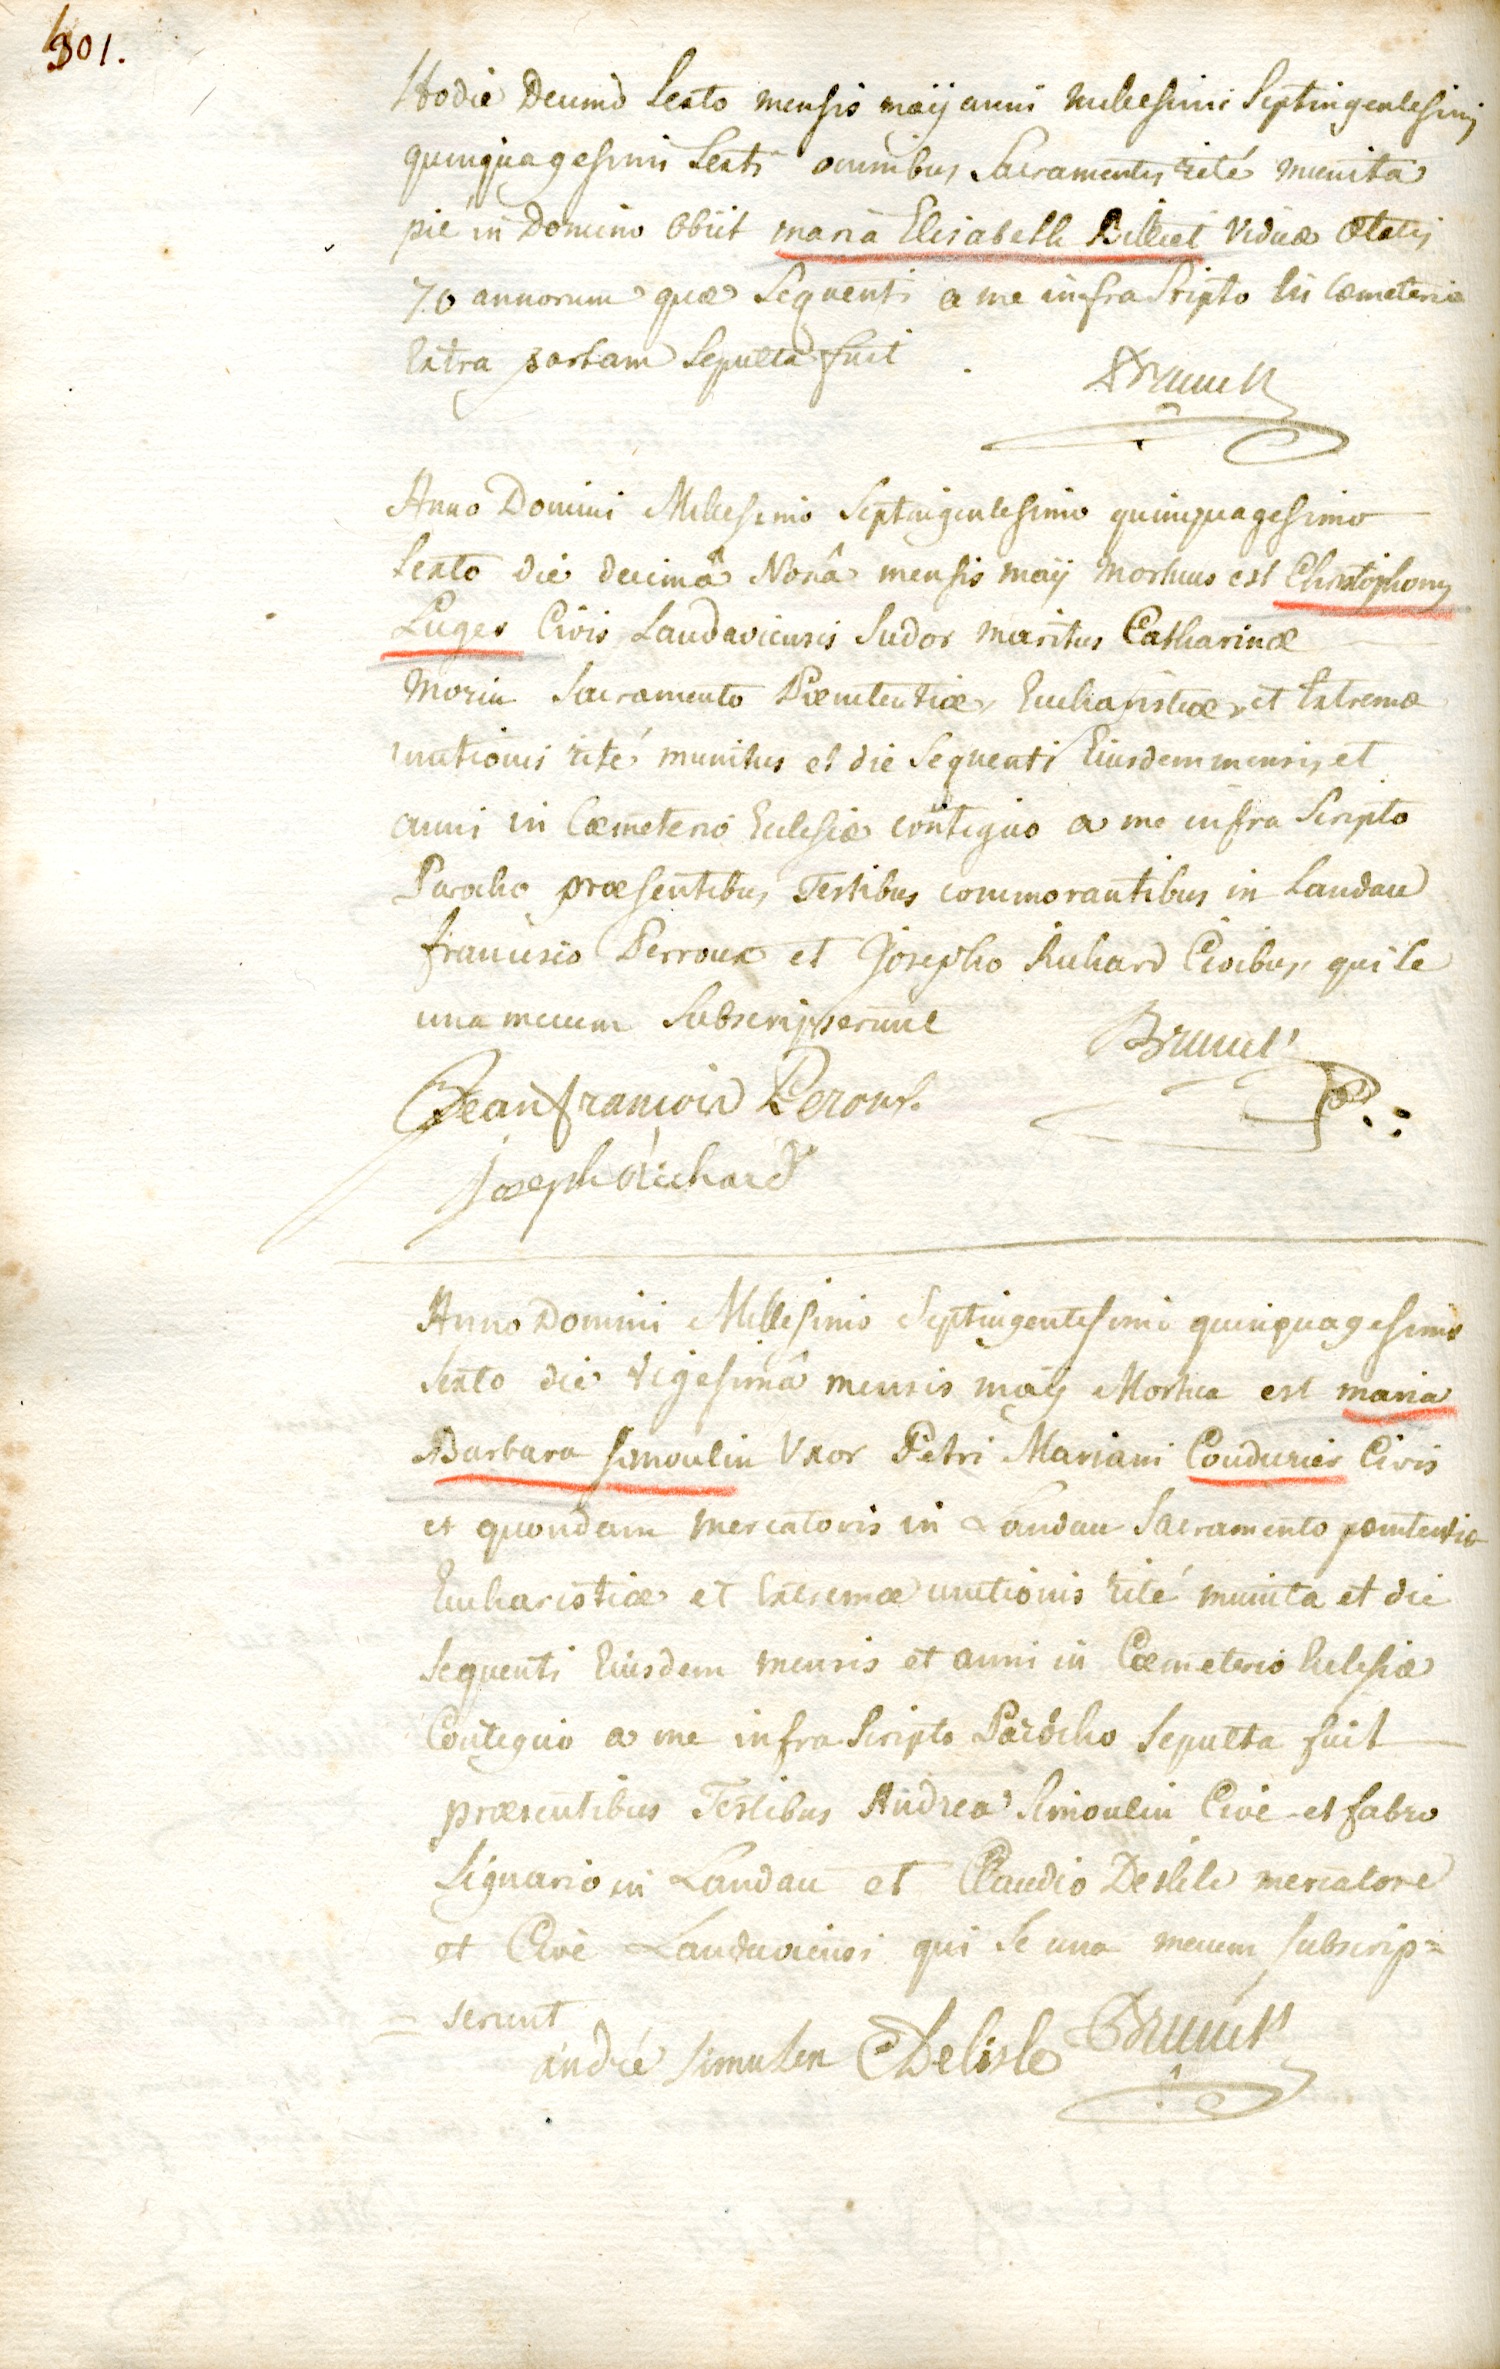 301.
Hodie Decimo Sexto mensis maÿ anni millesimi Septingentesimi
quinquagesimi Sexti omnibus Sacramentis rité munita
pié in Domino Obiit maria Elisabeth Billiet Viduæ Ætatis
70 annorum quæ Sequenti a me infra Scripto in Cœmeterio
Extra portam Sepulta fuit
Brunck
Anno Domini Millesimo Septingentesimo quinquagesimo
Sexto die decimâ Nonâ mensis maÿ Mortuus est Christophorus
Luger Civis Landaviensis Sudor maritus Catharinæ
Morin Sacramento Pœnitentiæ, Eucharistiæ, et Extremæ
unctionis rité munitus et die Sequenti Eiusdem mensis, et
anni in Cœmeterio Eclesiæ contiguo a me infra Scripto
Parocho præsentibus Testibus commorantibus in Landau
francisco Perroux et Josepho Richard Civibus, qui se
una mecum Subscripserunt
Brunck
Jean françois Peroux.
Joseph Richard
Anno Domini Millesimo Septingentesimo quinquagesimo
Sexto die vigesimâ mensis maÿ Mortua est maria
Barbara simoulin Uxor Petri Mariani Condurier Civis
et quondam mercatoris in Landau Sacramento pœnitentiæ
Eucharistiæ et Extremæ unctionis rité munita et die
Sequenti Eiusdem mensis et anni in Cœmeterio Eclesiæ
Contiguo a me infra Scripto Parocho Sepulta fuit
præsentibus Testibus Andrea Simoulin Cive et fabro
lignario in Landau et Claudio Delile mercatore
et Cive Landaviensi qui Se una mecum Subscrip=
= serunt
andré simulen CDelisle Brunck